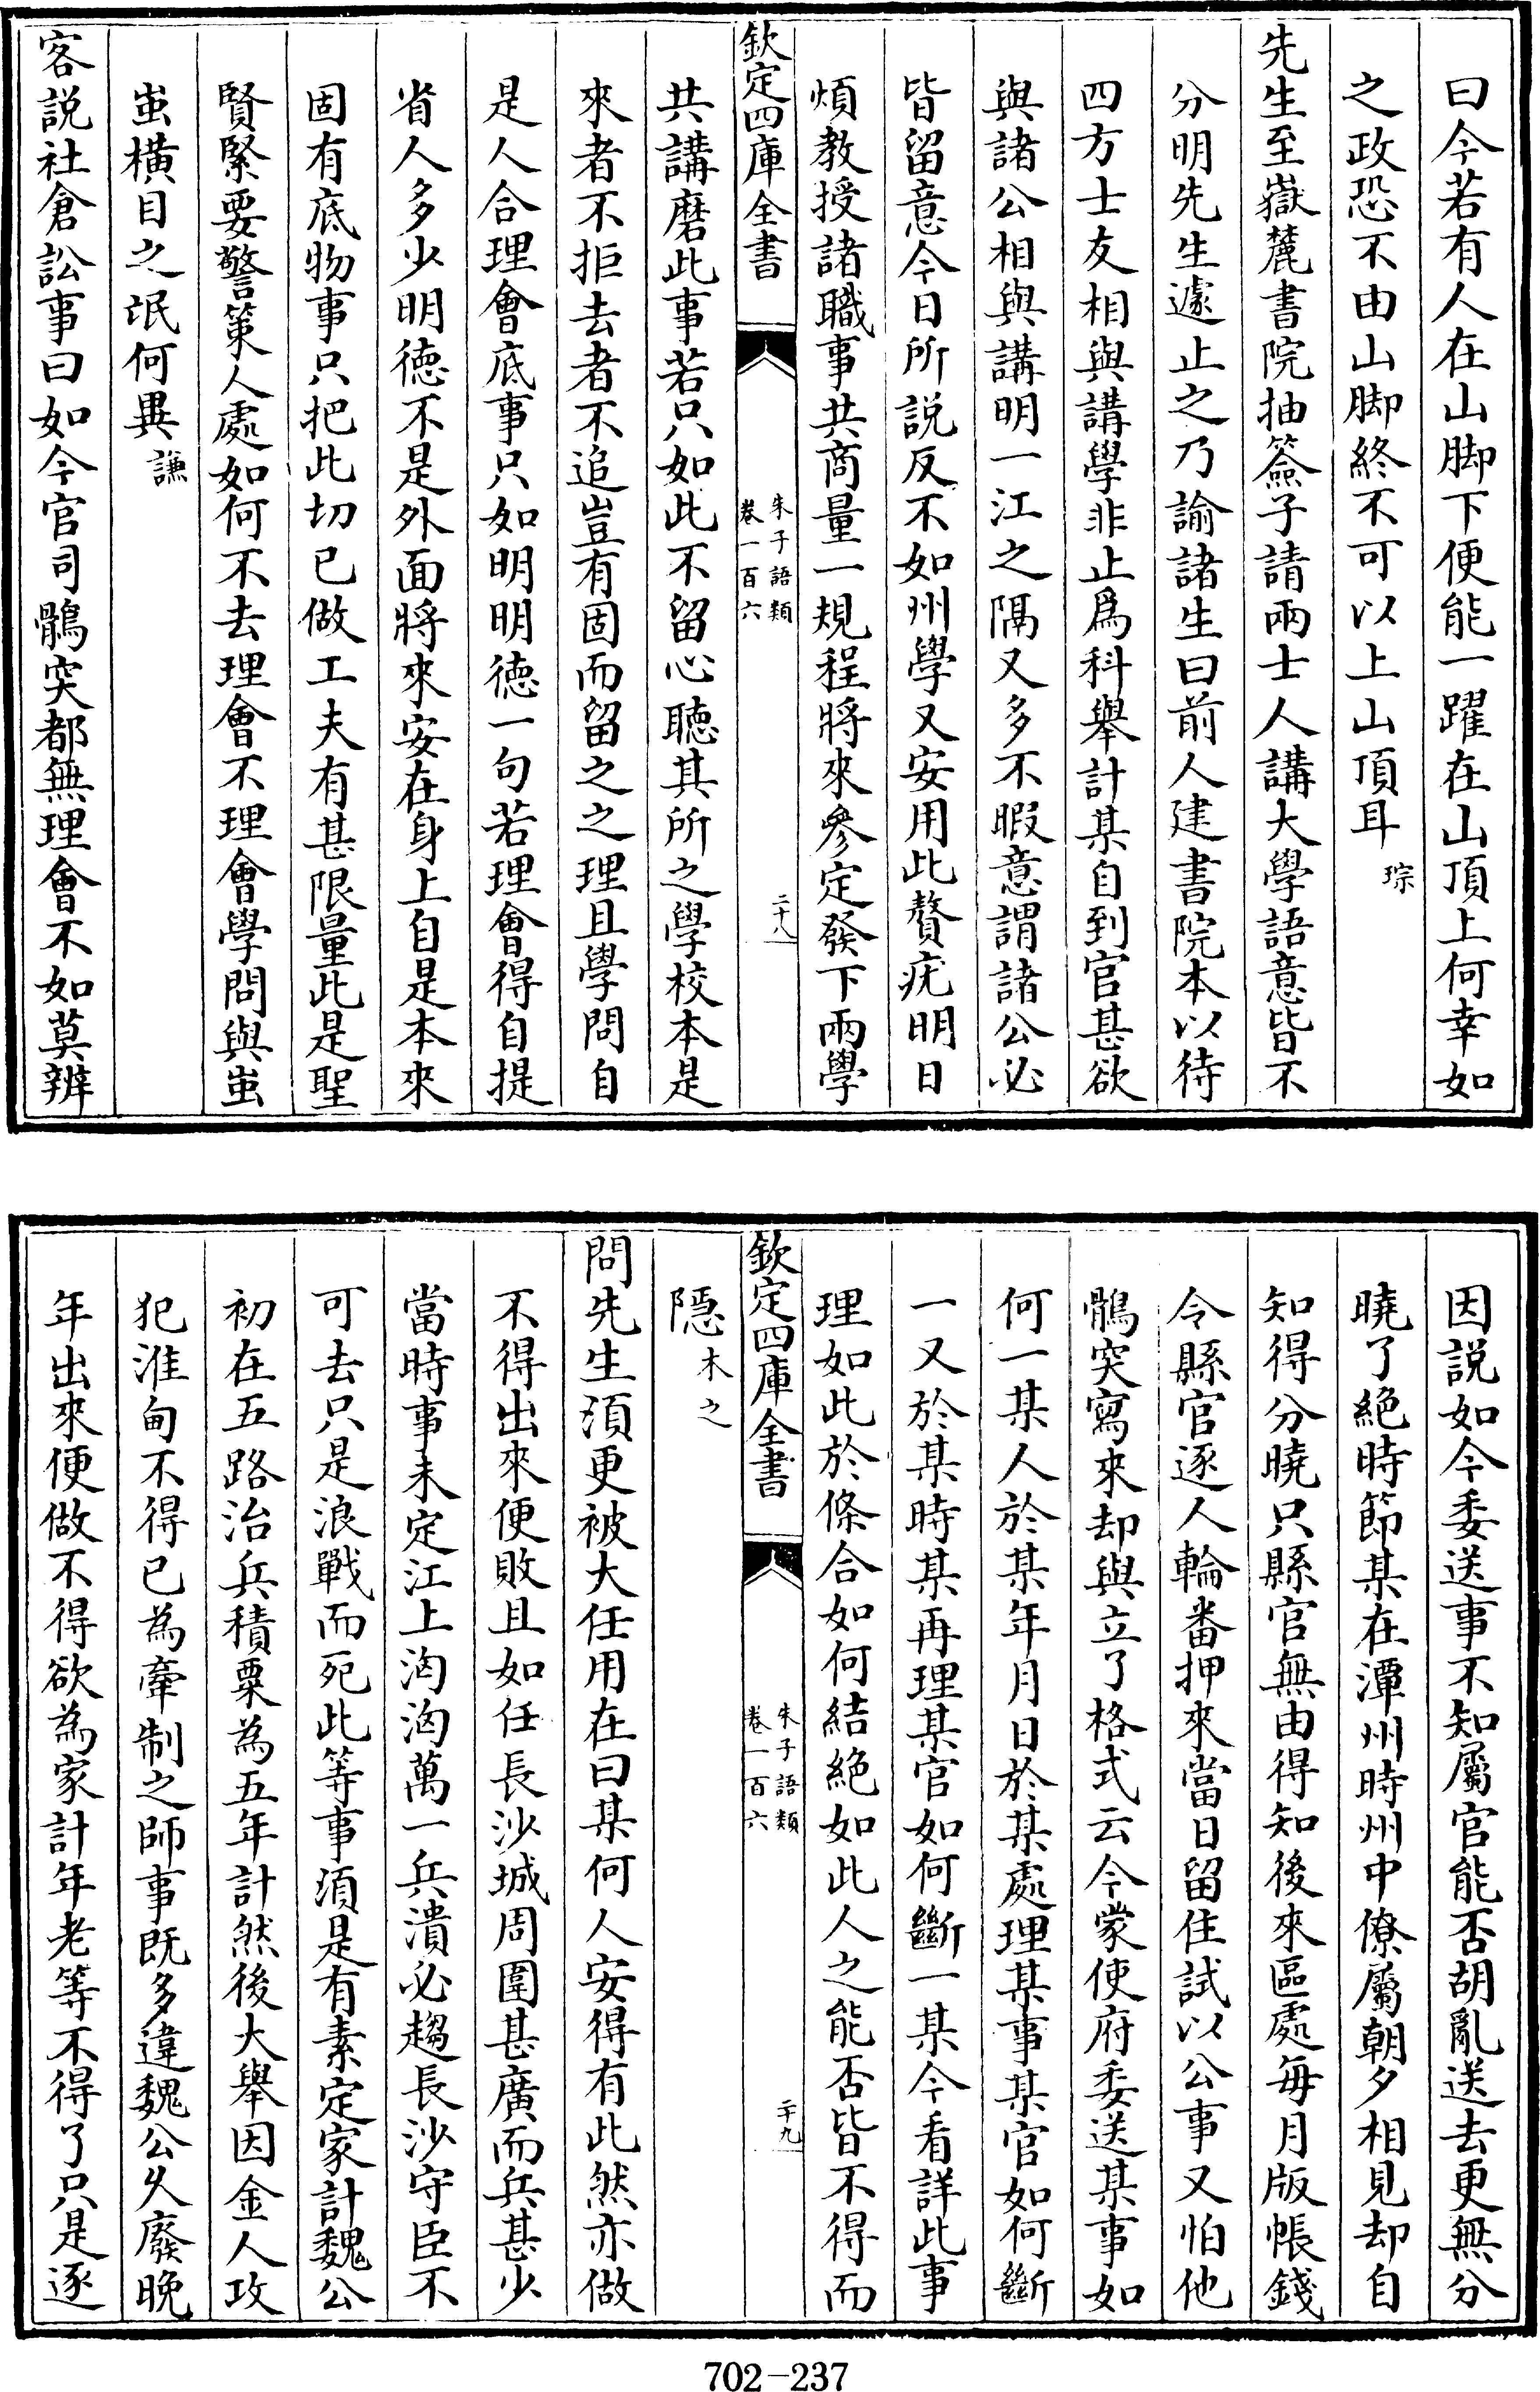 曰今若有人在山脚下便能一躍在山頂上何幸如
之政恐不由山脚終不可以上山頂耳琮
先生至嶽麓書院抽簽子請兩士人講大學語意皆不
分明先生遽止之乃諭諸生曰前人建書院本以待
四方士友相與講學非止爲科舉計某自到官甚欲
與諸公相與講明一江之隔又多不暇意謂諸公必
皆留意今日所說反不如州學又安用此贅疣明日
煩教授諸職事共商量一規程將來參定發下兩學
欽定四庫全書
朱子語類
卷一百六
二十八
共講磨此事若只如此不留心聽其所之學校本是
來者不拒去者不追豈有固而留之之理且學問自
是人合理會底事只如明明徳一句若理會得自提
省人多少明徳不是外面將來安在身上自是本來
固有底物事只把此切已做工夫有甚限量此是聖
賢緊要警策人處如何不去理會不理會學問與蚩
蚩橫目之氓何異謙
客說社倉訟事曰如今官司鶻突都無理會不如莫辨
因說如今委送事不知屬官能否胡亂送去更無分
曉了絶時節某在潭州時州中僚屬朝夕相見却自
知得分曉只縣官無由得知後來區處每月版帳錢
令縣官逐人輪番押來當日留住試以公事又怕他
鶻突寫來却與立了格式云今蒙使府委送某事如
何一某人於某年月日於某處理某事某官如何斷
一又於某時某再理某官如何斷一某今看詳此事
理如此於條合如何結絶如此人之能否皆不得而
欽定四庫全書
朱子語類
卷一百六
二十九
隠木之
問先生須更被大任用在曰某何人安得有此然亦做
不得出來便敗且如任長沙城周圍甚廣而兵甚少
當時事未定江上洶洶萬一兵潰必趨長沙守臣不
可去只是浪戰而死此等事須是有素定家計魏公
初在五路治兵積粟為五年計然後大舉因金人攻
犯淮甸不得已為牽制之師事既多違魏公久廢晚
年出來便做不得欲為家計年老等不得了只是逐
702-237